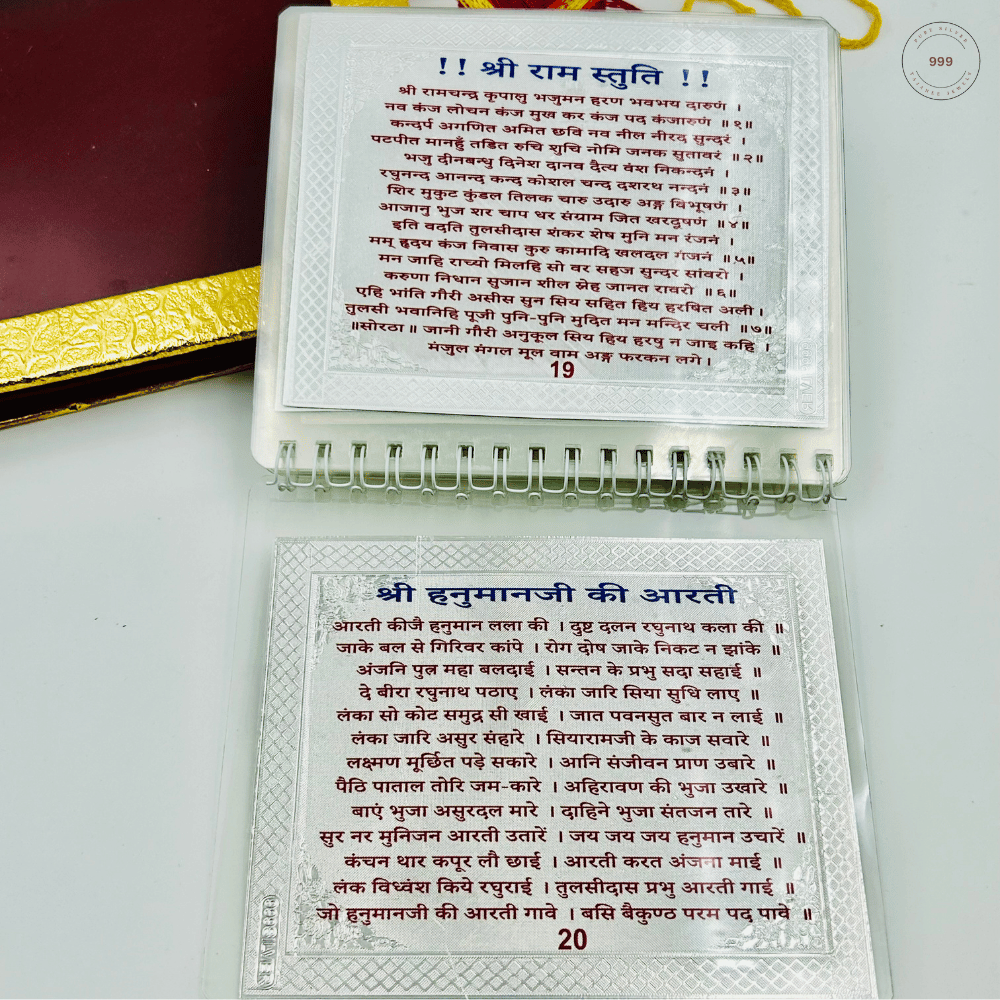 PURE SILVER
999
!! श्री राम स्तुति !!
श्री रामचन्द्र कृपालु भजुमन हरण भवभय दारुणं ।
नव कंज लोचन कंज मुख कर कंज पद कंजारुणं ॥१॥
कन्दर्प अगणित अमित छवि नव नील नीरद सुन्दरं ।
पटपीत मानहुँ तडित रुचि शुचि नोमि जनक सुतावरं ॥२॥
भजु दीनबन्धु दिनेश दानव दैत्य वंश निकन्दनं ।
रघुनन्द आनन्द कन्द कोशल चन्द दशरथ नन्दनं ॥३॥
शिर मुकुट कुंडल तिलक चारु उदारु अङ्ग विभूषणं ।
आजानु भुज शर चाप धर संग्राम जित खरदूषणं ॥४॥
इति वदति तुलसीदास शंकर शेष मुनि मन रंजनं ।
मम् हृदय कंज निवास कुरु कामादि खलदल गंजनं ॥५॥
मन जाहि राच्यो मिलहि सो वर सहज सुन्दर सांवरो ।
करुणा निधान सुजान शील स्नेह जानत रावरो ॥६॥
एहि भांति गौरी असीस सुन सिय सहित हिय हरषित अली ।
तुलसी भवानिहि पूजी पुनि-पुनि मुदित मन मन्दिर चली ॥७॥
॥सोरठा॥ जानी गौरी अनुकूल सिय हिय हरषु न जाइ कहि ।
मंजुल मंगल मूल वाम अङ्ग फरकन लगे।
19
श्री हनुमानजी की आरती
आरती कीजै हनुमान लला की । दुष्ट दलन रघुनाथ कला की ॥
जाके बल से गिरिवर कांपे । रोग दोष जाके निकट न झांके ॥
अंजनि पुत्र महा बलदाई । सन्तन के प्रभु सदा सहाई ॥
दे बीरा रघुनाथ पठाए । लंका जारि सिया सुधि लाए ॥
लंका सो कोट समुद्र सी खाई । जात पवनसुत बार न लाई ॥
लंका जारि असुर संहारे । सियारामजी के काज सवारे ॥
लक्ष्मण मूर्छित पड़े सकारे । आनि संजीवन प्राण उबारे ॥
पैठि पाताल तोरि जम-कारे । अहिरावण की भुजा उखारे ॥
बाएं भुजा असुरदल मारे । दाहिने भुजा संतजन तारे ॥
सुर नर मुनिजन आरती उतारें । जय जय जय हनुमान उचारें ॥
कंचन थार कपूर लौ छाई । आरती करत अंजना माई ॥
लंक विध्वंश किये रघुराई । तुलसीदास प्रभु आरती गाई ॥
जो हनुमानजी की आरती गावे । बसि बैकुण्ठ परम पद पावे ॥
20